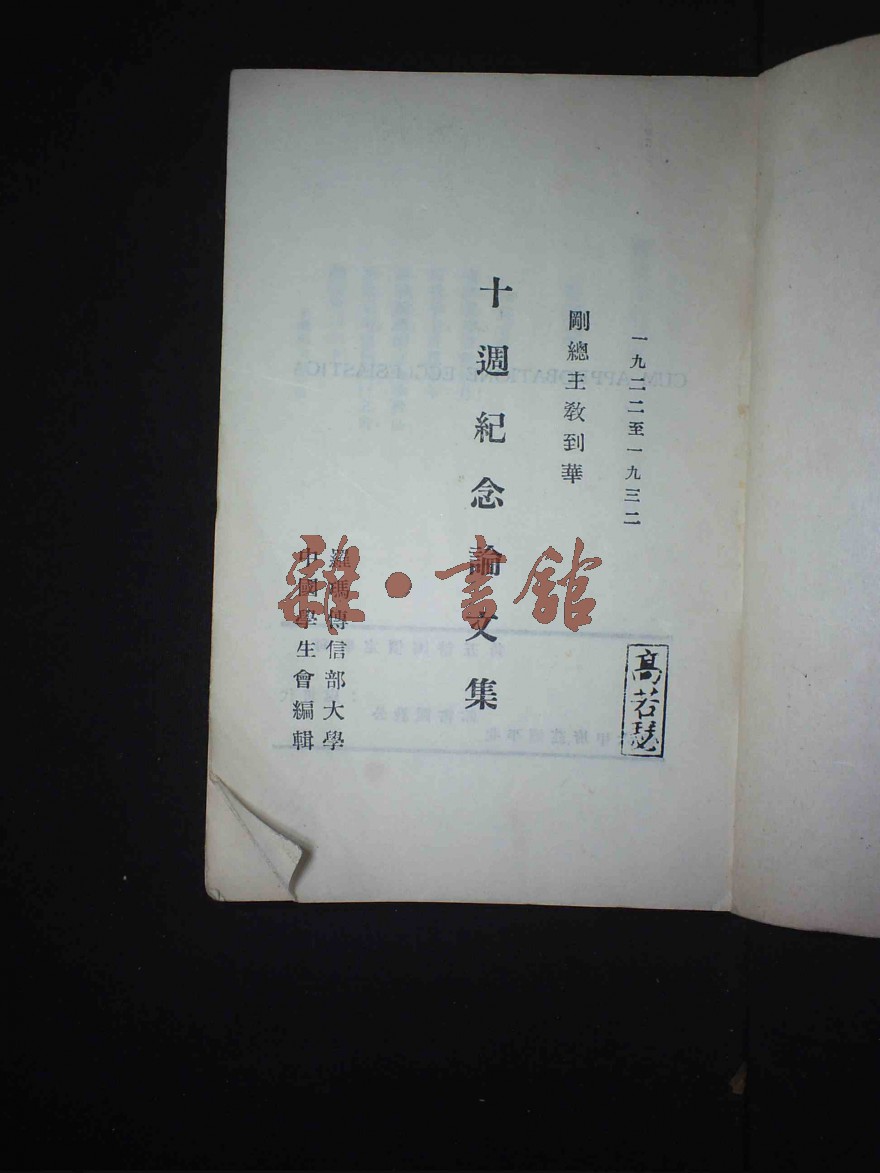 一九二二至一九三二
剛總主教到華
十週紀念論文集
羅瑪傳信部大學
中國學生會編輯
高若瑟
雜·書館
CUM APPROBATIONE ECCLESIASTICA